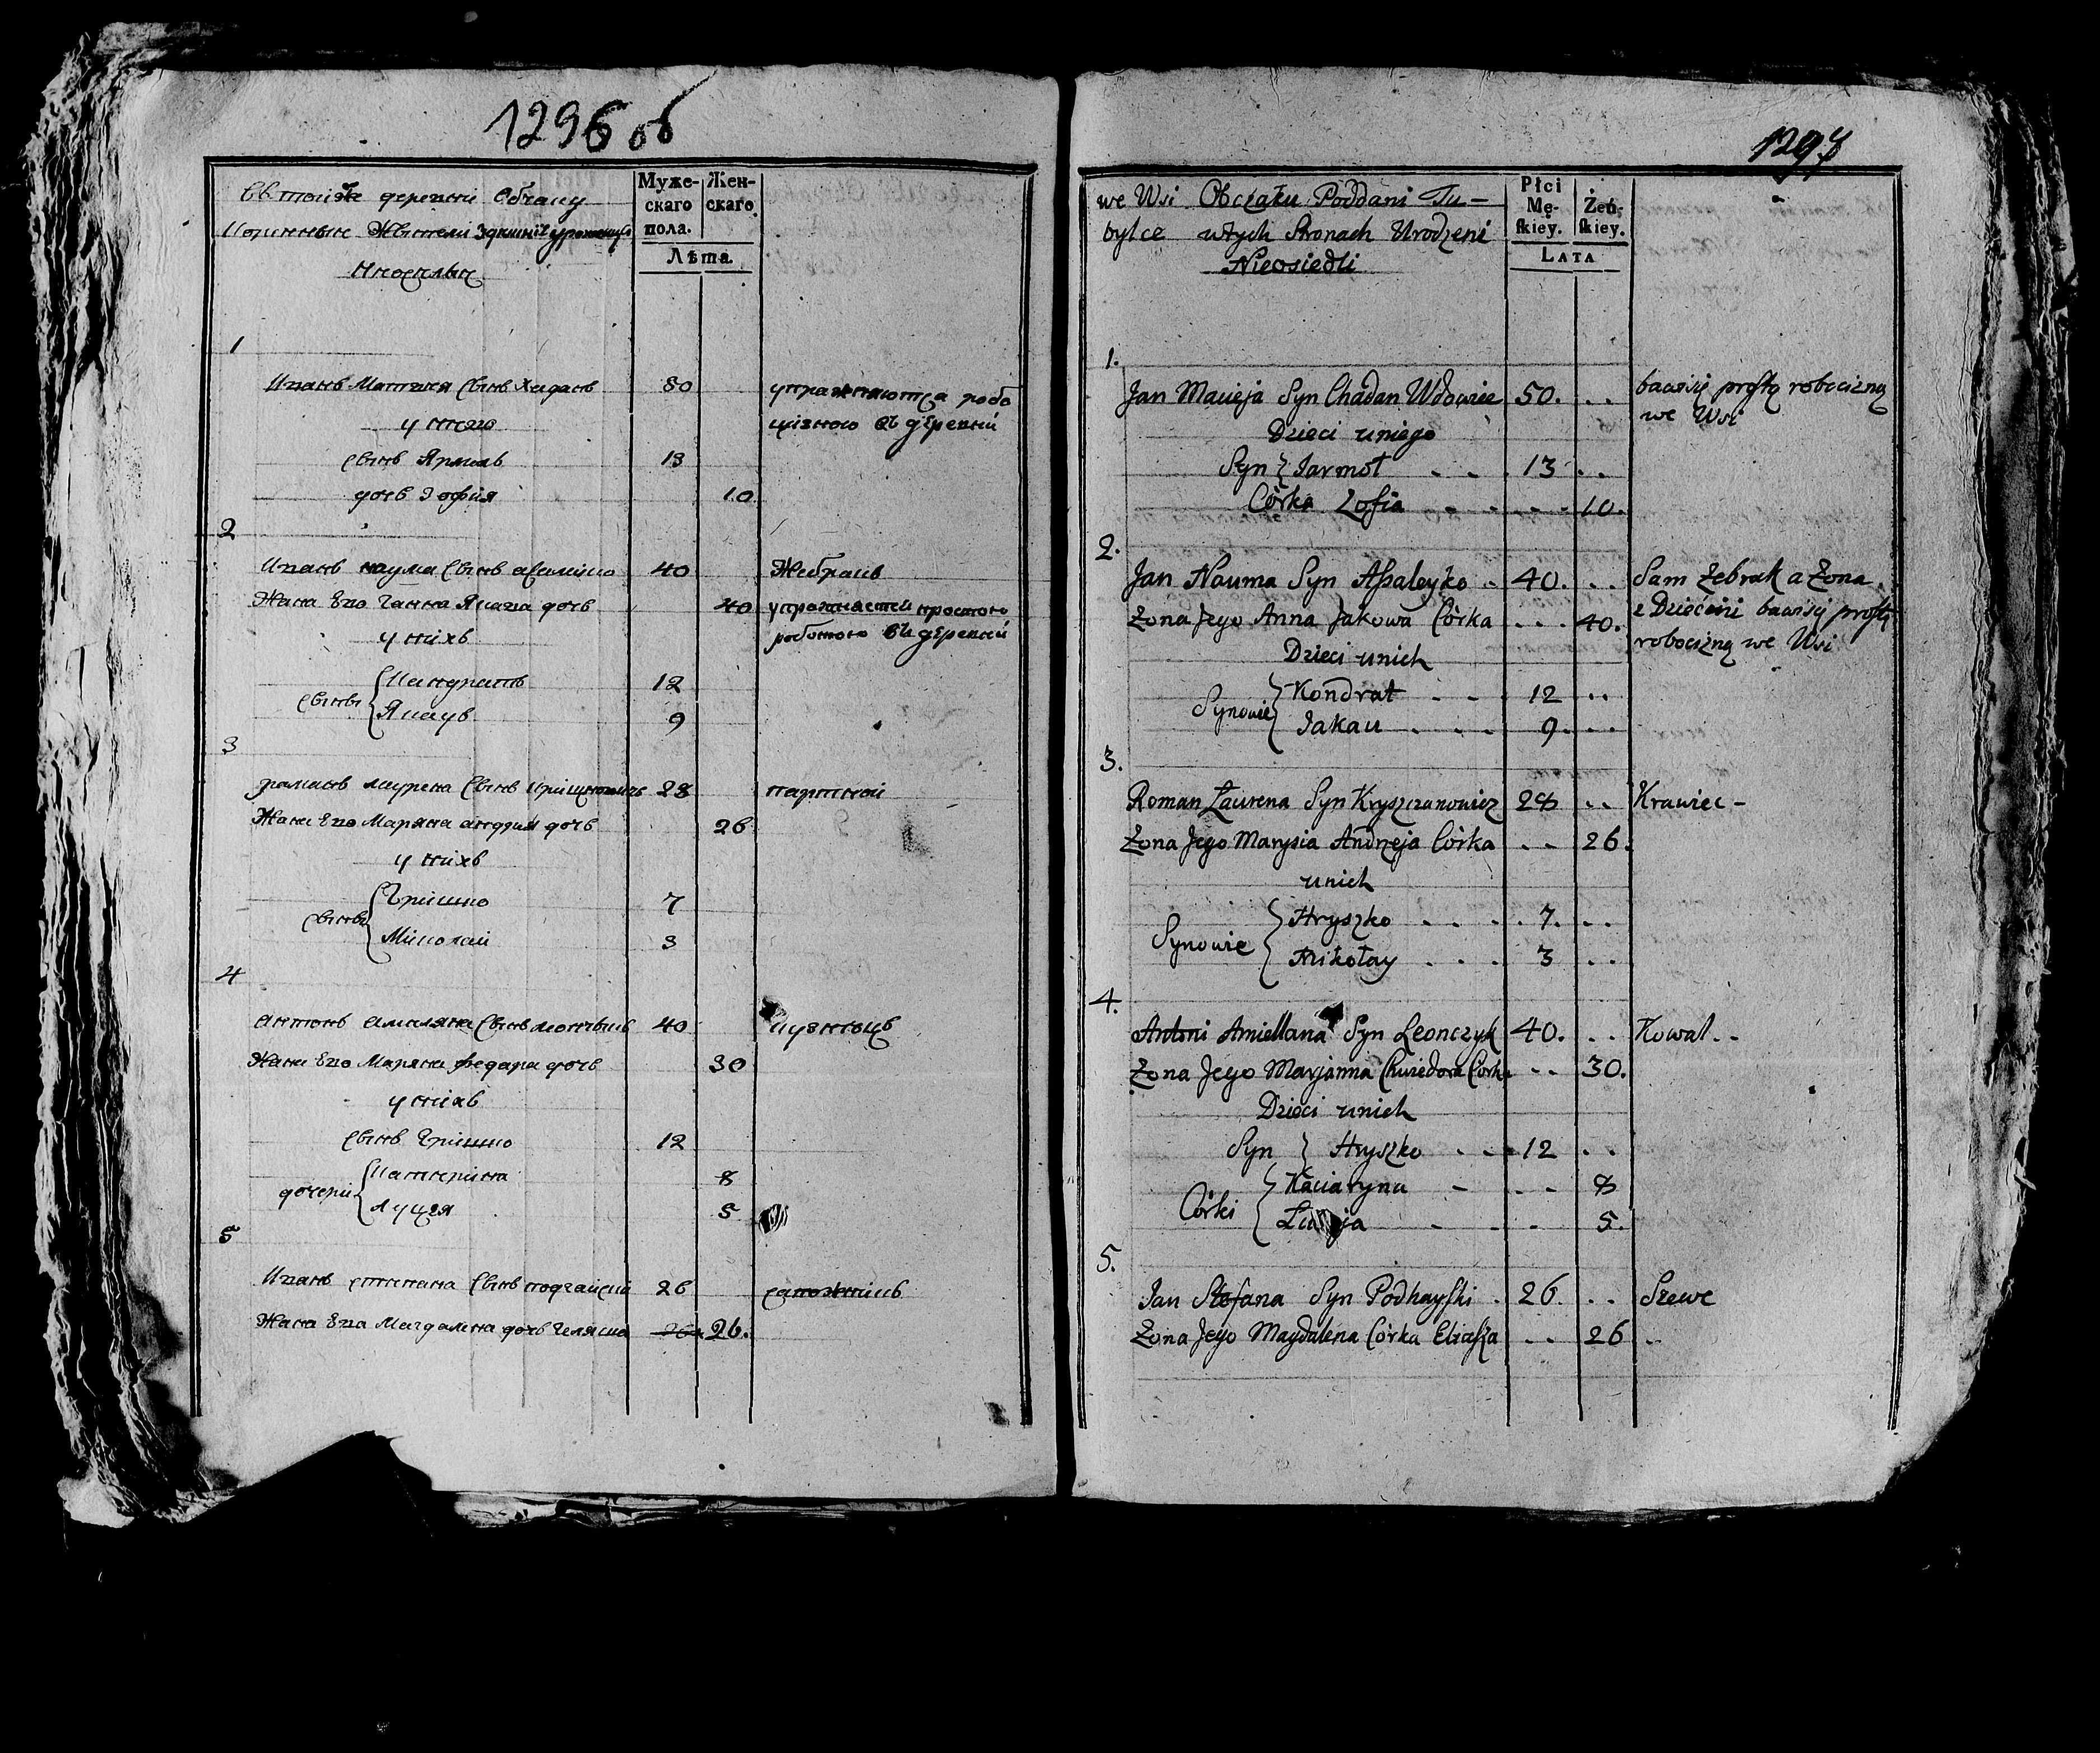 1296 об
Въ той же деревни Обчаку
Коринные Жвители здешние уроженцы
Неоселые
Муже-
скаго
пола.
Жен-
скаго.
Лѣта.
1
Иванъ Матвея сынъ Хадан 50 упражняютса робо
у него цізною въ деревни
сынъ Ярмолъ 13
дочь Зофия 10
2
Иванъ наума сынъ 40 Жебракъ
Жана Его Ганна Якава дочь 40 упражняетси простою
у ніхъ работою въ деревни
сыны Кандратъ 12
Якаувъ 9
3
раманъ лаурена сынъ крищановичъ 28 партной
Жана Его Маряна андрия дочь 26
у ніхъ
сыны Грішко 7
Міколай 3
4
антонъ амиляна сынъ леончыкъ 40 кузнецъ
Жана Его Маряна федара дочь 30
у ніхъ
сынъ Грішко 12
дочери Катерина 8
Луцея 5
5
Иванъ степана сынъ подгайски 26 сапожникъ
Жана Его Магдалена дочь Геляша 26 26.
1297
we Wsi Obczaku Poddani Tu-
bylce w tych Stronach Urodzeni
Nieosiedli
Płci
Mę-
skiey.
Żeń-
skiey.
LATA
1.
Jan Macieja Syn Chadan Wdowiec 50. . . bawi się prostą robocizną
Dzieci u niego we Wsi
Syn Jarmoł . . . 13 . .
Córka Zofia . . . . 10.
2.
Jan Nauma Syn Assaleyko . 40. . . Sam Żebrak a Żona
Żona Jego Anna Jakowa Córka . . . 40. z Dziećmi bawi się prostą
Dzieci u nich robocizną we Wsi
Synowie Kondrat . . . 12 . .
Jakau . . . 9. . .
3.
Roman Łaurena Syn Kryszczanowicz 28 . . Krawiec -
Żona Jego Marysia Andrzeja Córka . . 26.
u nich
Synowie Hryszko . . . . 7. . .
Mikołay . . . 3 . .
4.
Antoni Amiellana Syn Leonczyk 40. . . Kowal . .
Żona Jego Marjanna Chwiedora Córka . . 30.
Dzieci u nich
Syn Hryszko . . . 12 . .
Córki Kaciaryna - . . 8
. . . 5.
5.
Jan Stefana Syn Podhayski . 26. . . Szewc
Żona Jego Magdalena Córka Eliasza . . 26 . .